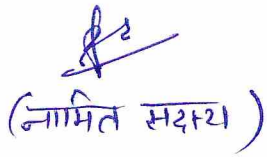 (नामित सदस्य)